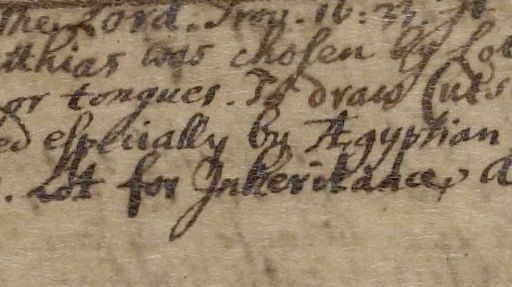 the Lord. Prov. 16: 33. It
atthias was chosen by Lot
or tongues. To draw Cuts
ed especially by Ægyptian
. Lot for Inheritance, d